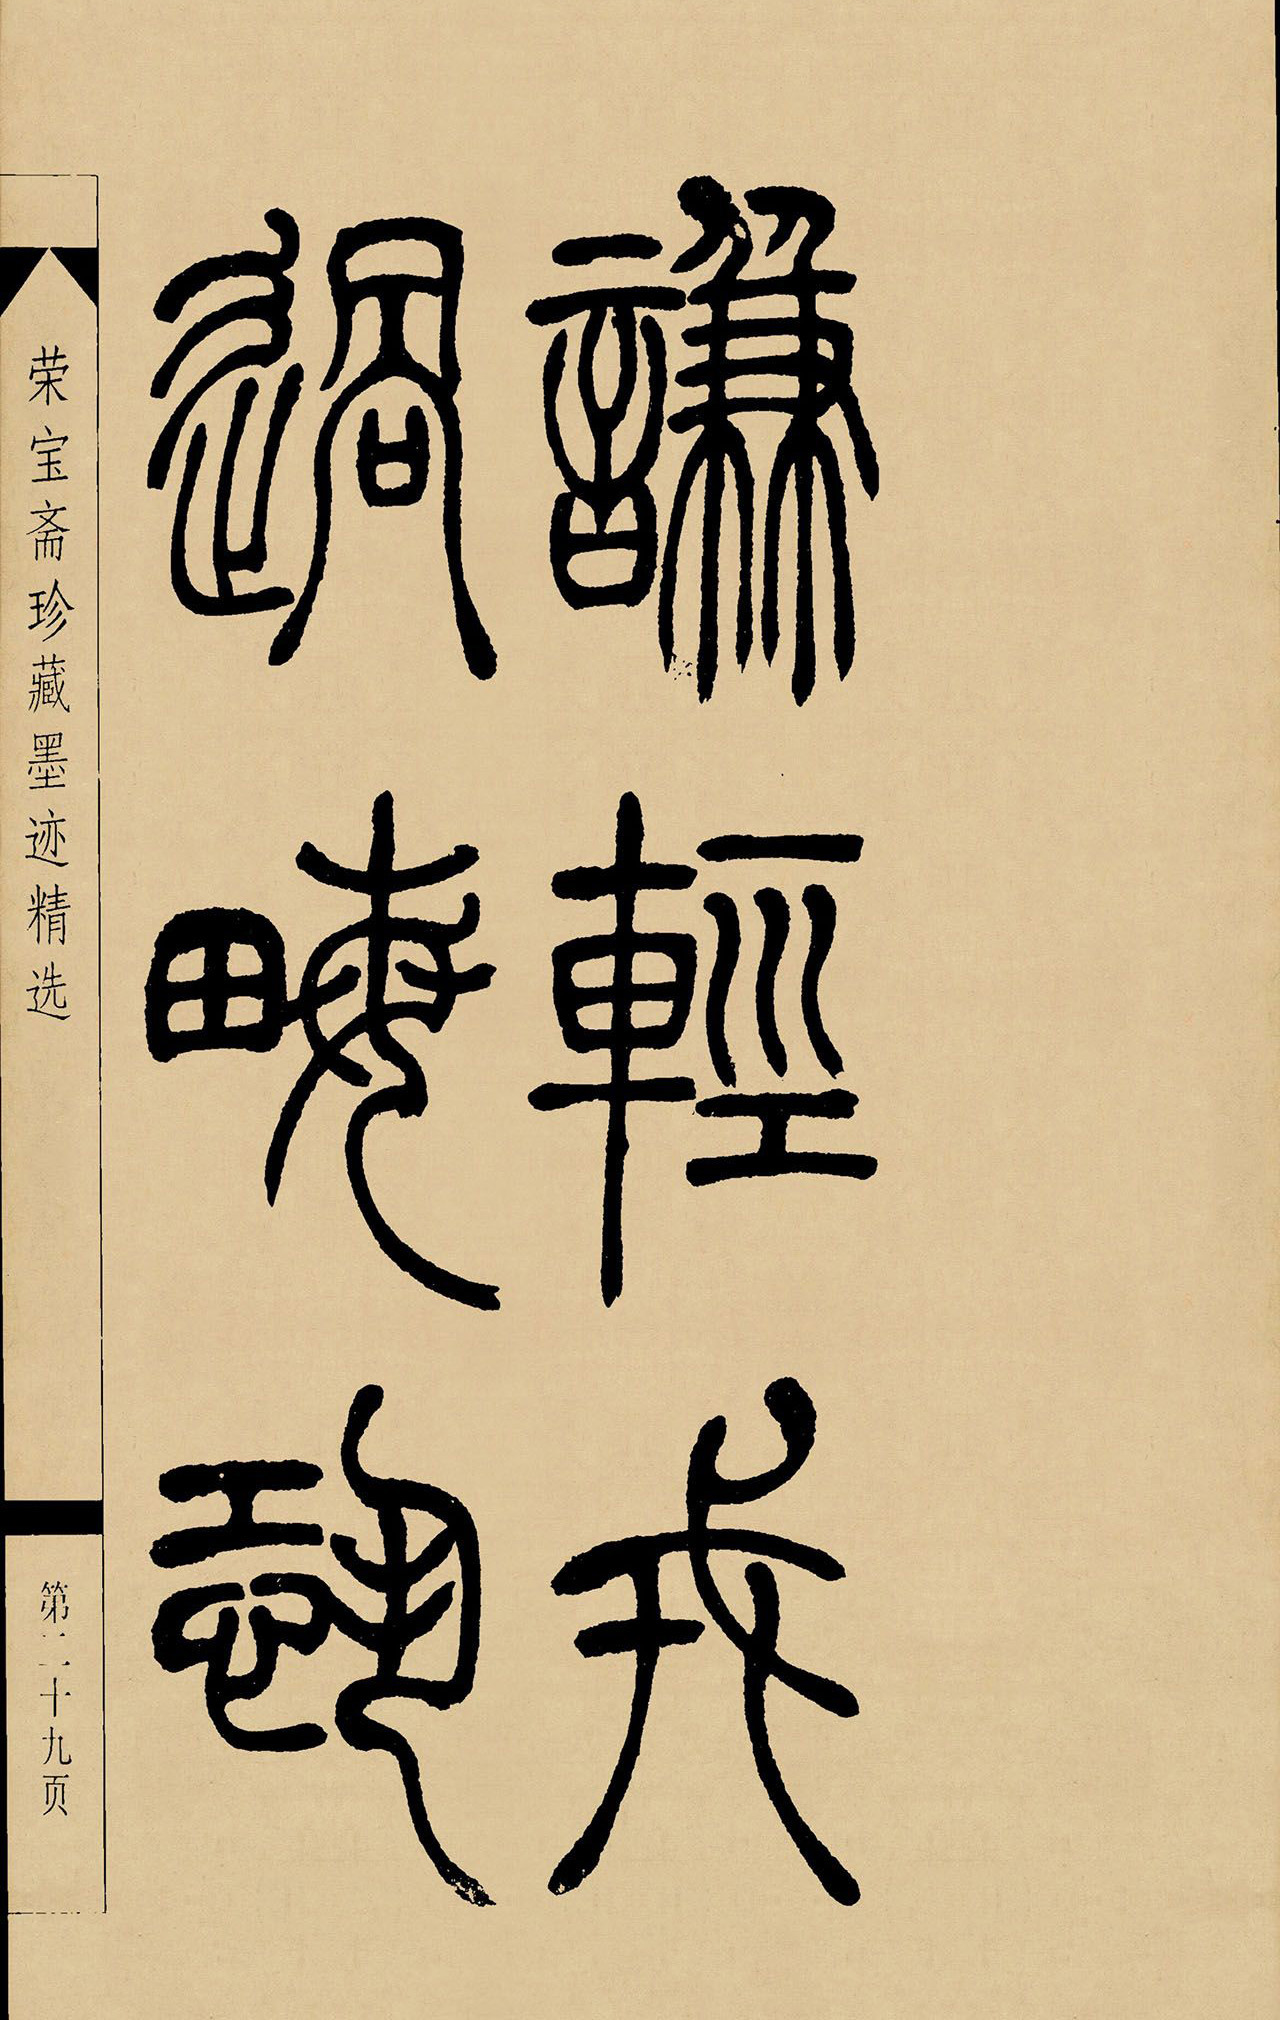 謙輕戎
過畮恐
荣宝斋珍藏墨迹精选
第二十九页